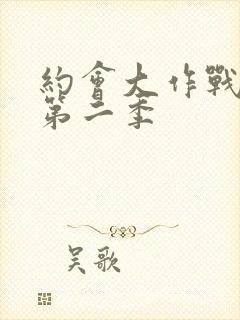 約會大作戰
第二季
吴歌